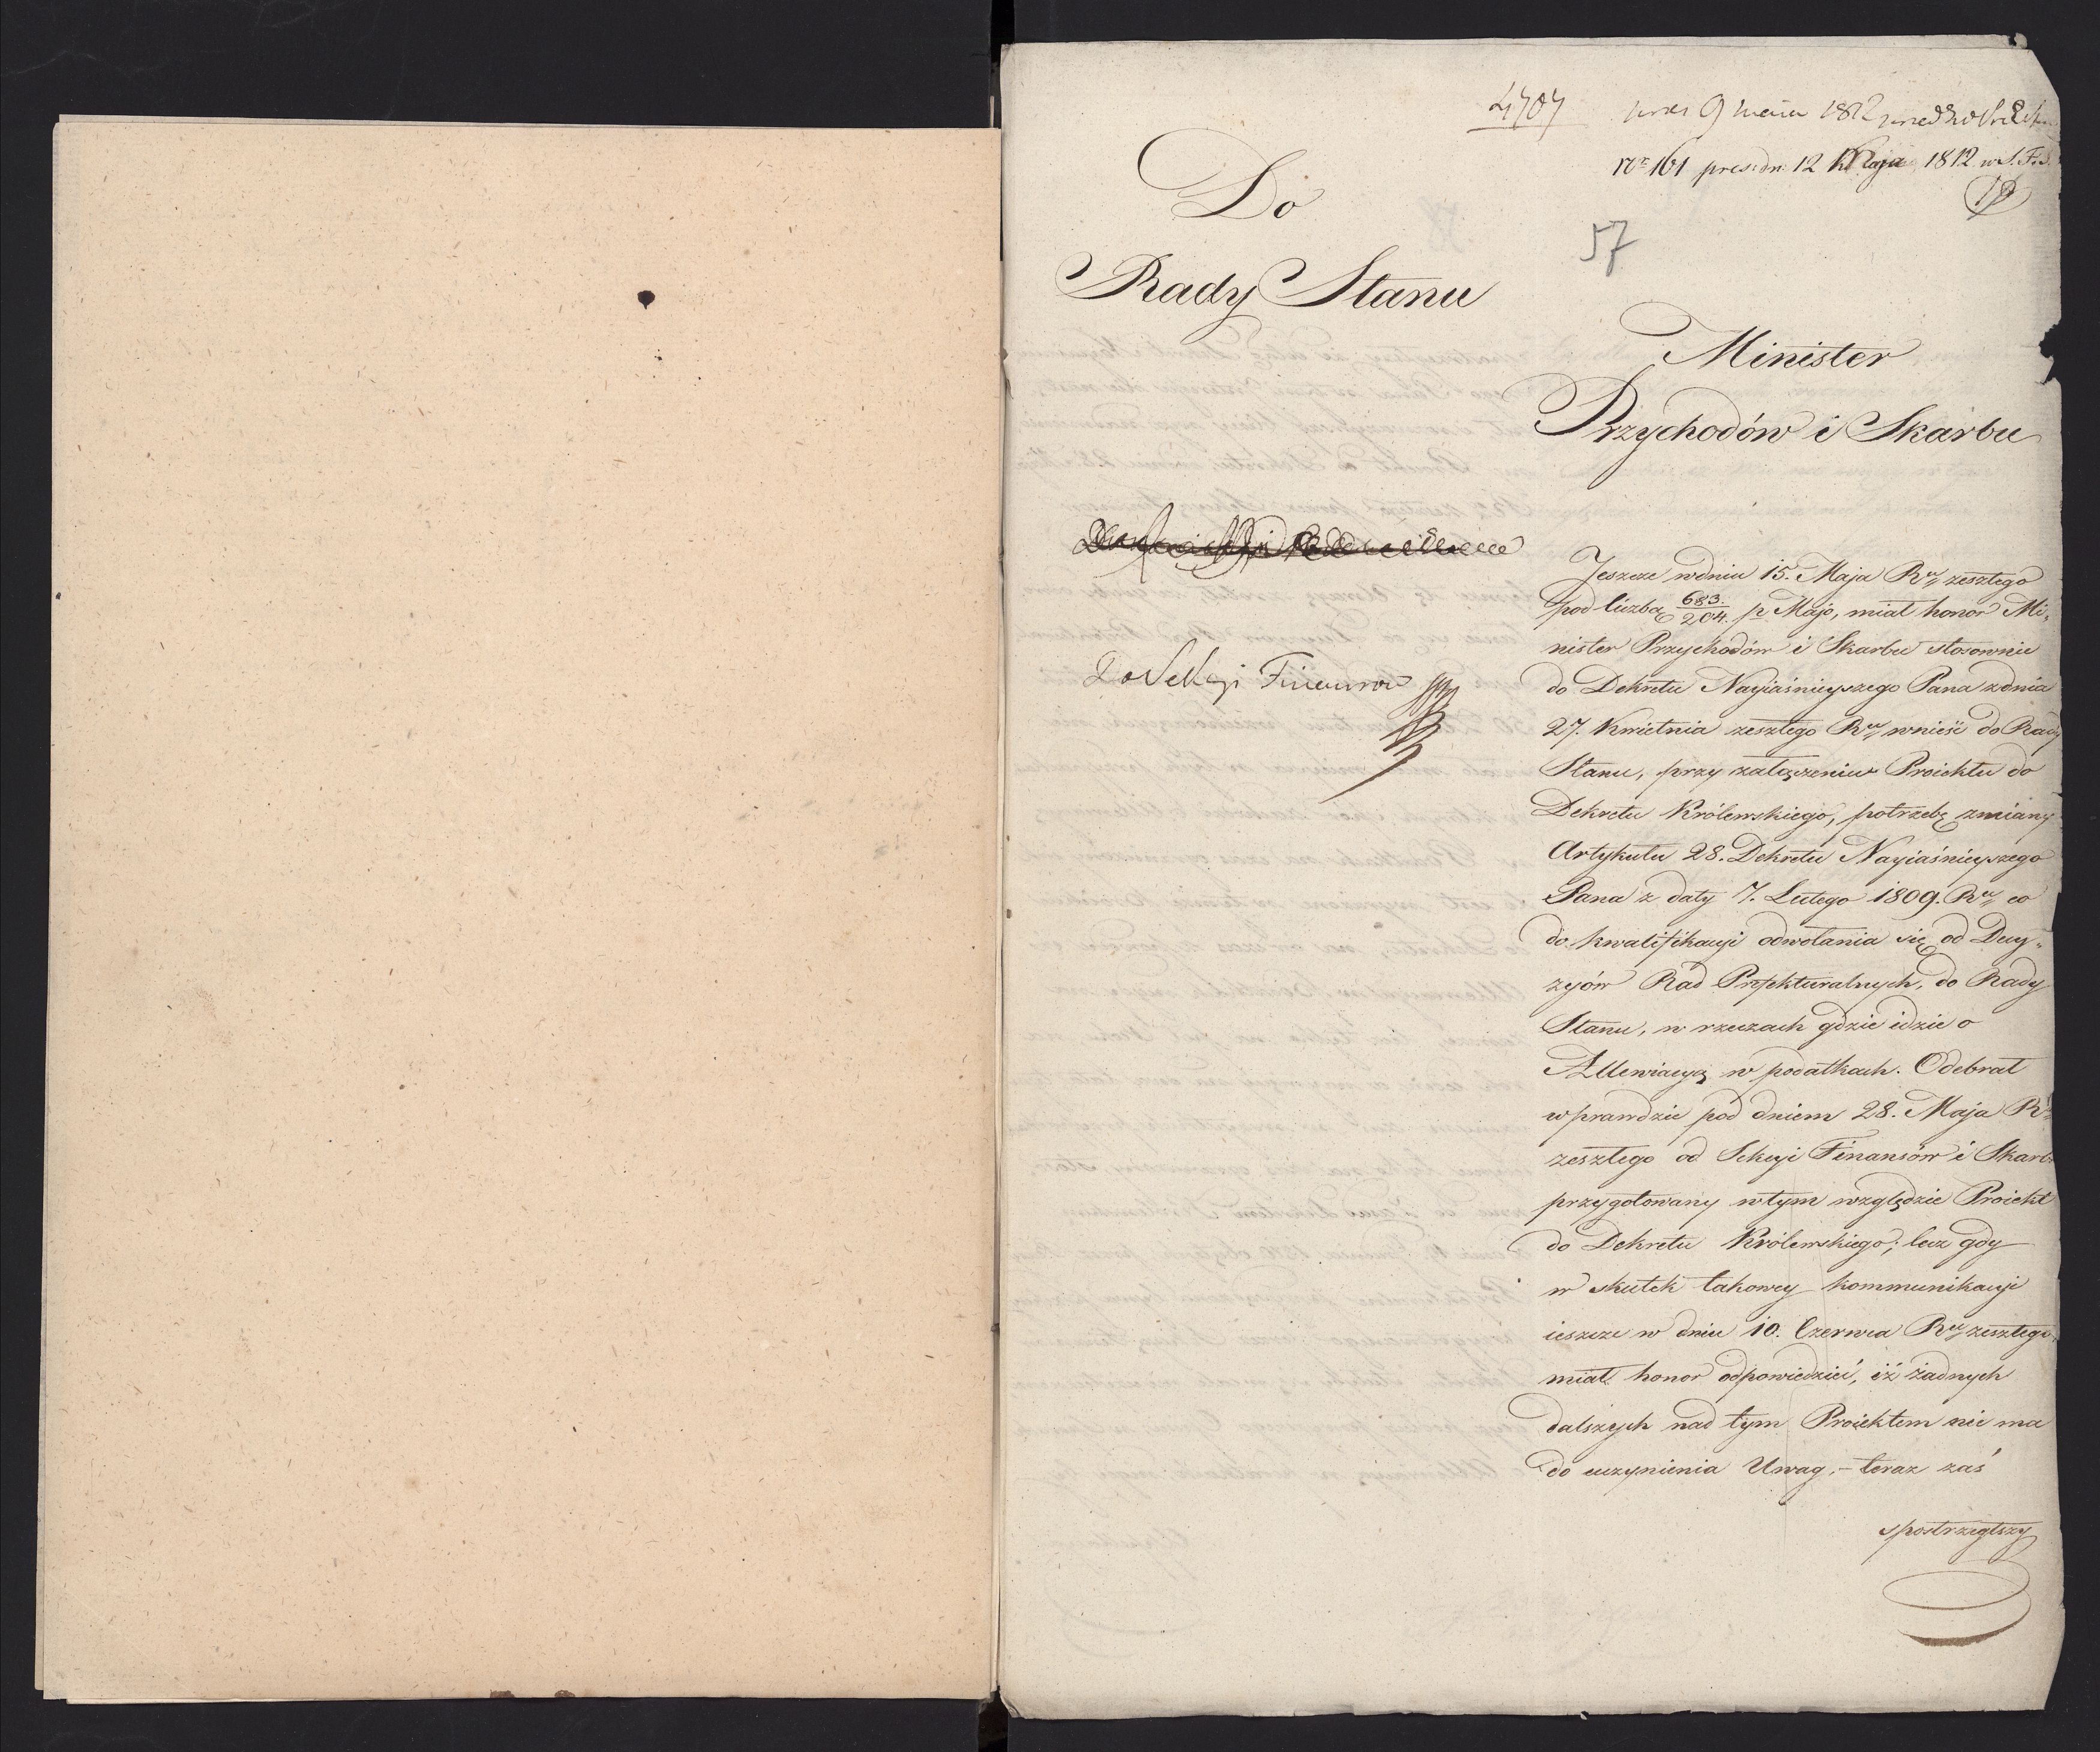 4707
pres 9 maia 1812
Nr 161 pres: dn: 12 Maja 1812 w S. F. S.
57
Do
Rady Stanu
Minister
Przychodów i Skarbu
Do Sekcyi Finansow
Jeszcze w dniu 15. Maja Ru zeszłego
pod liczbą 683./204. pr Majo, miał honor Mi„
nister Przychodów i Skarbu stosownie
do Dekretu Nayiaśnieyszego Pana z dnia
27. Kwietnia zeszłego Ru wnieść do Rady
Stanu, przy załączeniu Proiektu do
Dekretu Królewskiego, potrzebę zmiany
Artykułu 28. Dekretu Nayiaśnieyszego
Pana z daty 7. Lutego 1809. Ru co
do kwalifikacyi odwołania się od Decy„
zyów Rad Prefekturalnych, do Rady
Stanu, w rzeczach gdzie idzie o
Allewiacyą w podatkach. Odebrał
wprawdzie pod dniem 28. Maja R
zeszłego od Sekcyi Finansów i Skarb:
przygotowany w tym względzie Proiekt
do Dekretu Królewskiego; lecz gdy
w skutek takowey kommunikacyi
ieszcze w dniu 10. Czerwca Ru zeszłego
miał honor odpowiedzieć, iż żadnych
dalszych nad tym Proiektem nie ma
do uczynienia Uwag, – teraz zaś
spostrzegłszy